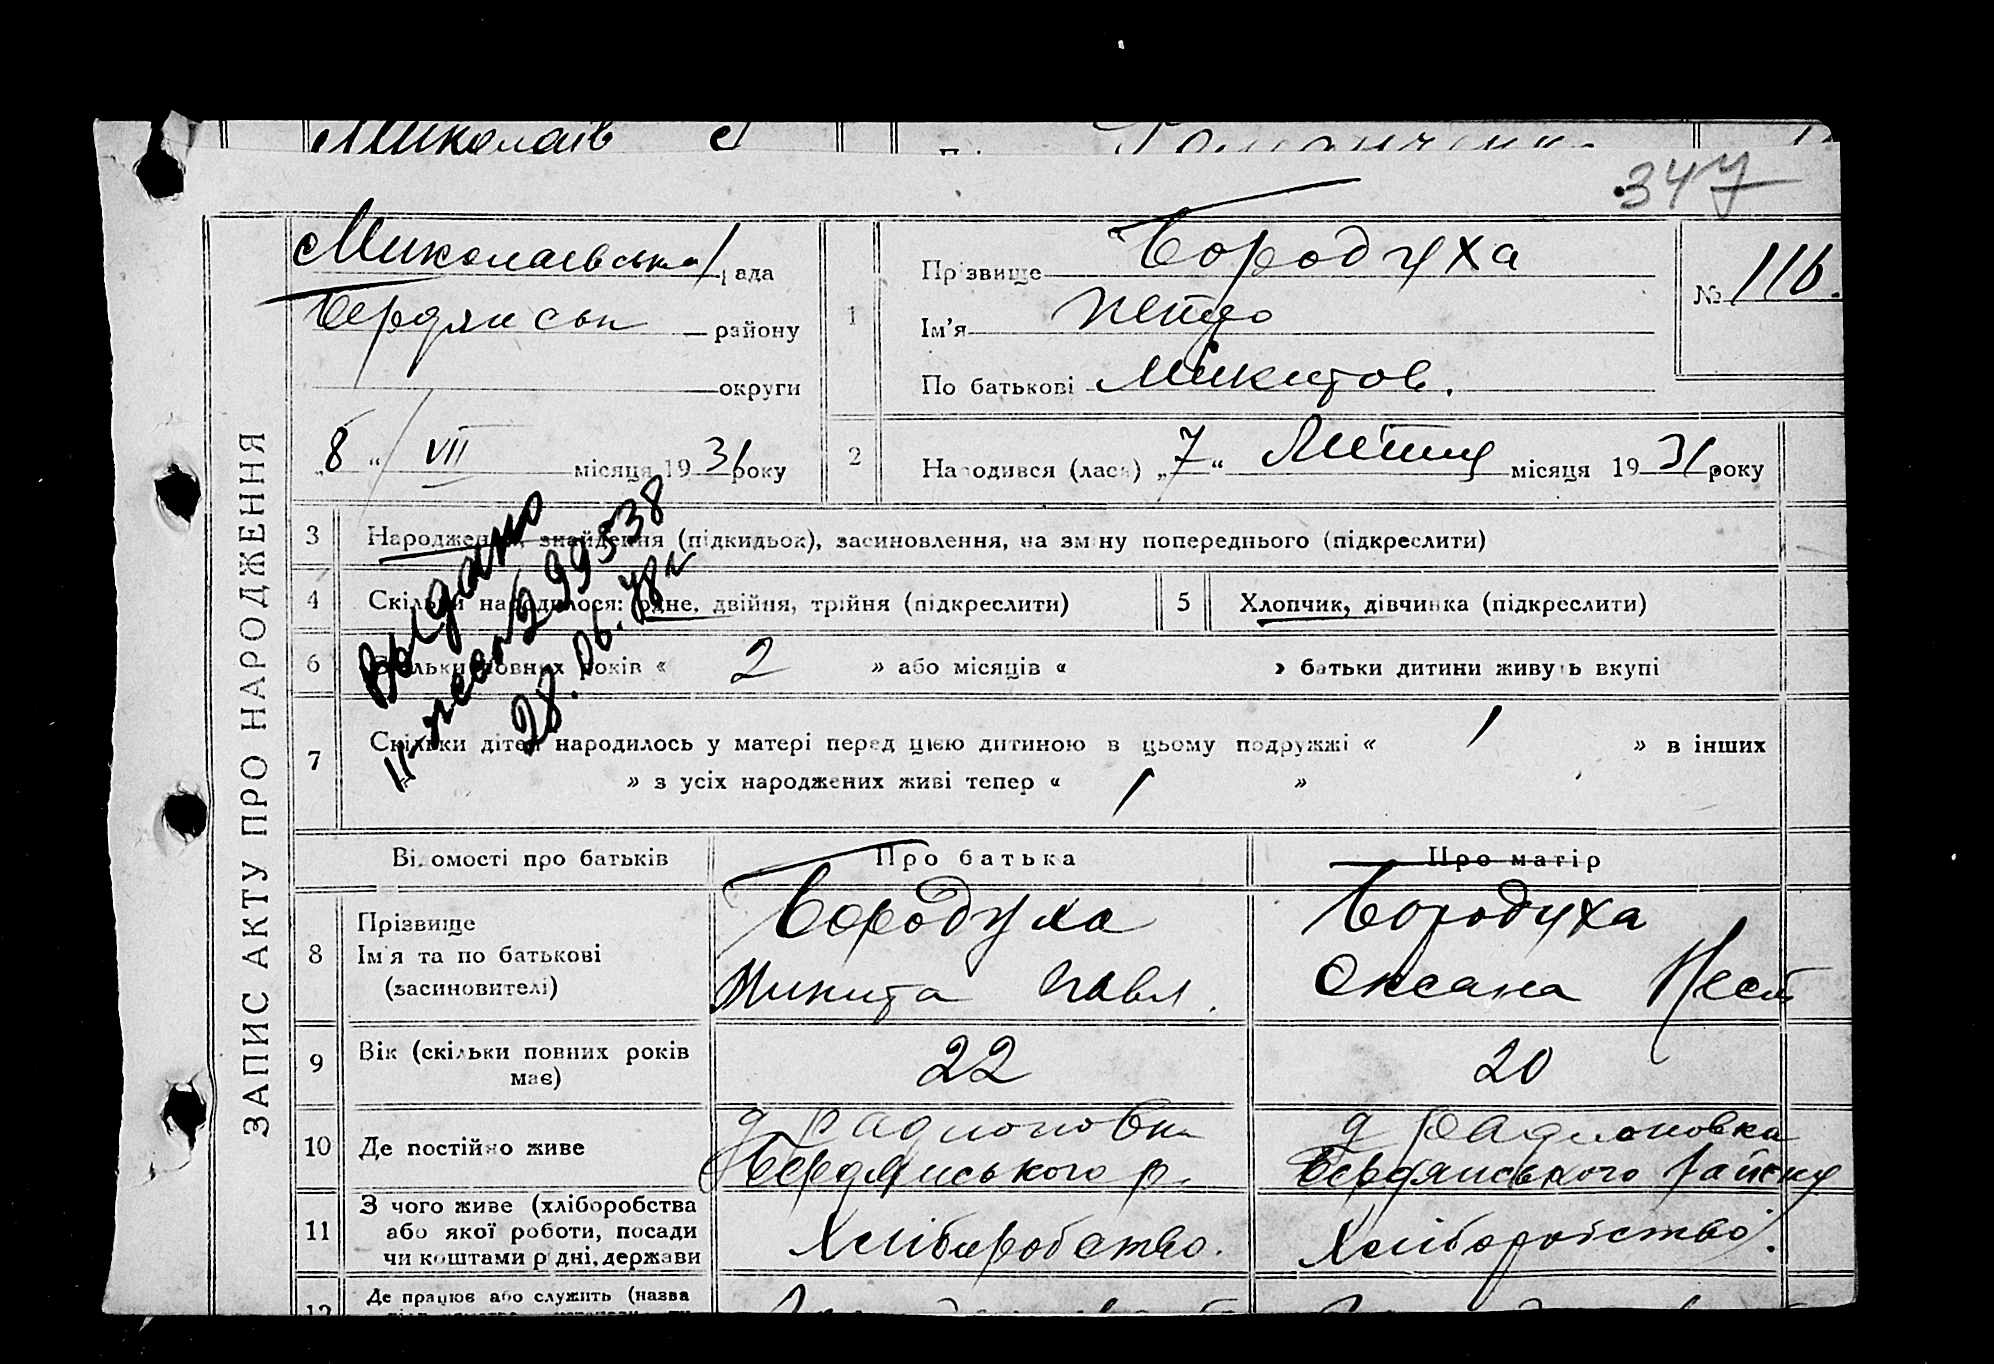 Миколаїв
347
ЗАПИС АКТУ ПРО НАРОДЖЕННЯ
Миколаєвська рада
Бердянськ району
округи
„8“ VII місяця 1931 року
1
Прізвище Бородуха
Ім'я Петро
По батькові Микитов.
№ 116.
2
Народився (лася) „7“ Липця місяця 1931 року
3 Народження, знайдення (підкидьок), засиновлення, на зміну попереднього (підкреслити)
4 Скільки народилося: одне, двійня, трійня (підкреслити)
5 Хлопчик, дівчинка (підкреслити)
6 Скільки повних років « 2 » або місяців « » батьки дитини живуть вкупі
7 Скільки дітей народилось у матері перед цією дитиною в цьому подружжі « 1 » в інших
» з усіх народжених живі тепер « 1 »
Выдано
299538
28.06.48 г
Відомості про батьків Про батька Про матір
8 Прізвище
Ім'я та по батькові
(засиновителі)
Бородуха
Микита Павл.
Бородуха
Оксана Нест
9 Вік (скільки повних років
має)
22 20
10 Де постійно живе
д Радионовка
Бердянського р.
д Радионовка
Бердянського району
11 З чого живе (хліборобства
або якої роботи, посади
чи коштами рідні, держави
Хліборобство.
Хліборобство.
12 Де працює або служить (назва